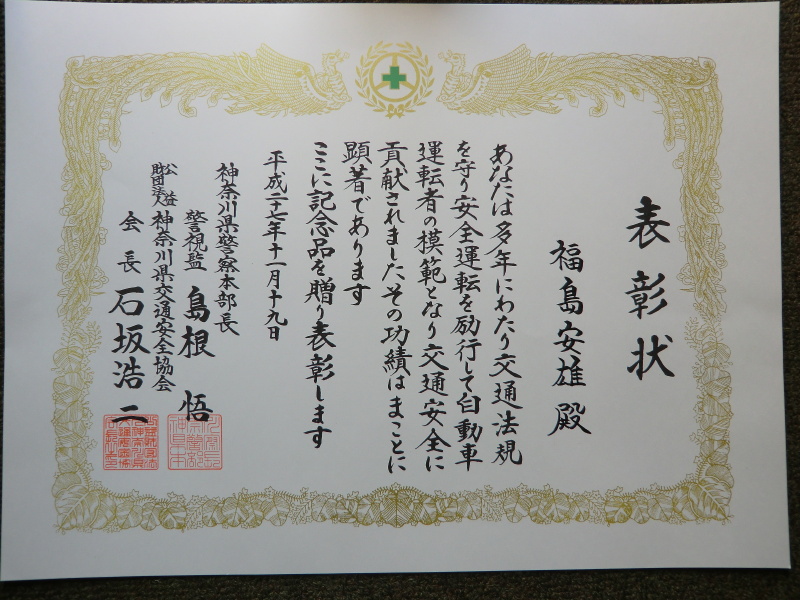 表彰状
福島安雄殿
あなたは多年にわたり交通法規
を守り安全運転を励行して自動車
運転者の模範となり交通安全に
貢献されましたその功績はまことに
顕著であります
ここに記念品を贈り表彰します
平成二十七年十一月十九日
神奈川県警察本部長
警視監 島根悟
公益財団法人 神奈川県交通安全協会
会長 石坂浩二